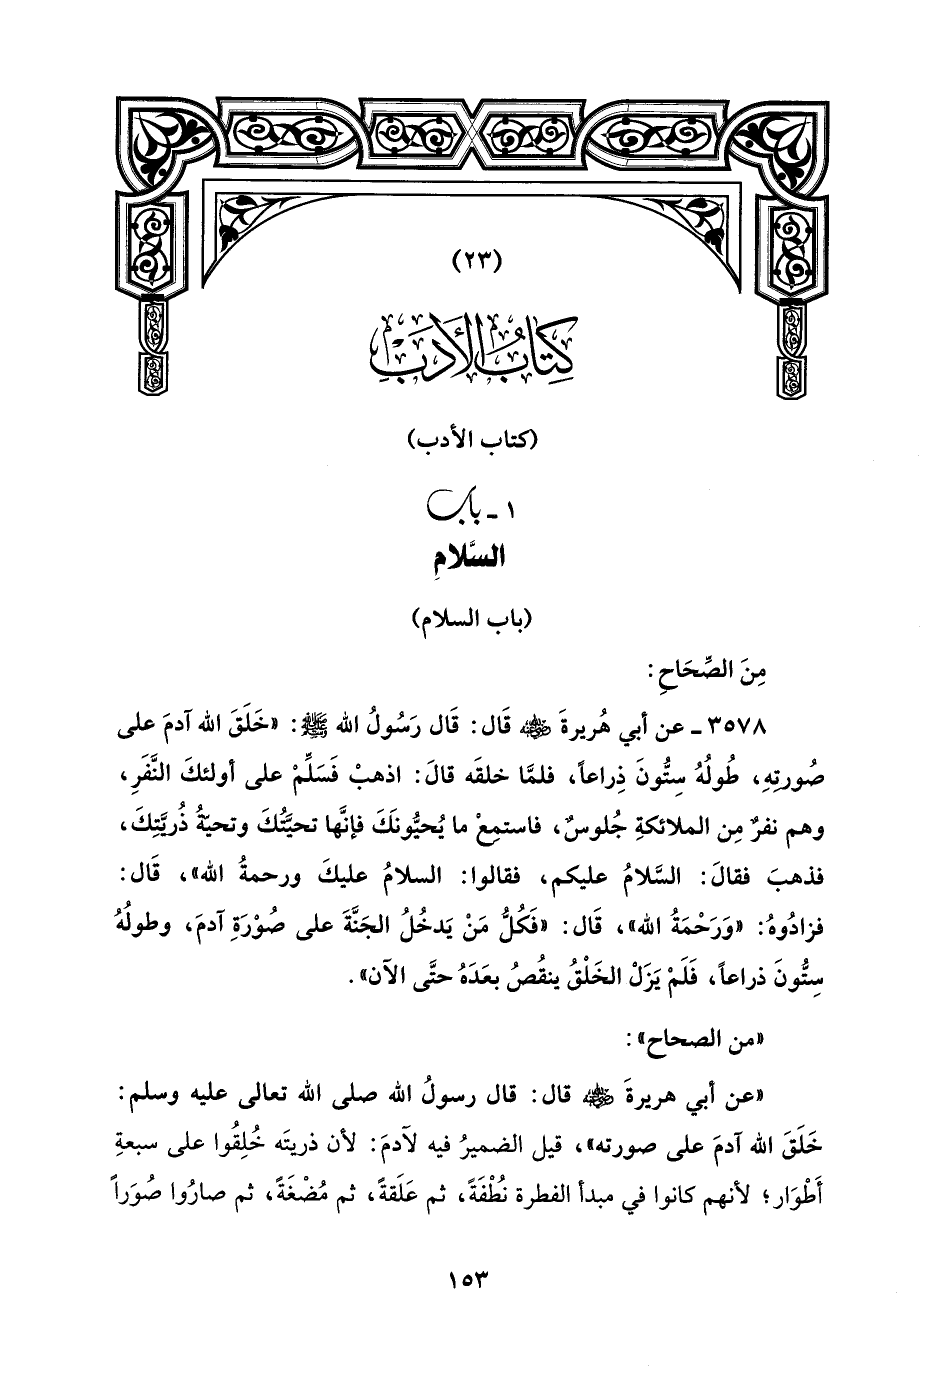 (٢٣)
كِتَابُ الأَدَبِ
(كتاب الأدب)
١ ـ باب
السَّلامِ
(باب السلام)
مِنَ الصِّحَاحِ:
٣٥٧٨ ـ عن أبي هُريرةَ ﵁ قَال: قَال رَسُولُ الله ﷺ: «خَلَقَ الله آدمَ على
صُورتِهِ، طُولُهُ سِتُّونَ ذِراعاً، فلمَّا خلقَه قالَ: اذهبْ فَسَلِّمْ على أولئكَ النَّفَرِ،
وهم نفرٌ مِن الملائكةِ جُلوسٌ، فاستمِعْ ما يُحيُّونَكَ فإنَّها تحيَّتُكَ وتحيّةُ ذُريَّتِكَ،
فذهبَ فقالَ: السَّلامُ عليكم، فقالوا: السلامُ عليكَ ورحمةُ الله»، قَال:
فزادُوهُ: «وَرَحْمَةُ الله»، قَال: «فَكُلُّ مَنْ يَدخُلُ الجَنَّةَ على صُوْرَةِ آدمَ، وطولُهُ
سِتُّونَ ذراعاً، فَلَمْ يَزَلْ الخَلْقُ ينقُصُ بعدَهُ حتَّى الآن».
«من الصحاح»:
«عن أبي هريرةَ ﵁ قال: قال رسولُ الله صلى الله تعالى عليه وسلم:
خَلَقَ الله آدمَ على صورته»، قيل الضميرُ فيه لآدمَ: لأن ذريتَه خُلِقُوا على سبعةِ
أَطْوَار؛ لأنهم كانوا في مبدأ الفطرة نُطْفَةً، ثم عَلَقةً، ثم مُضْغَةً، ثم صارُوا صُوَراً
١٥٣